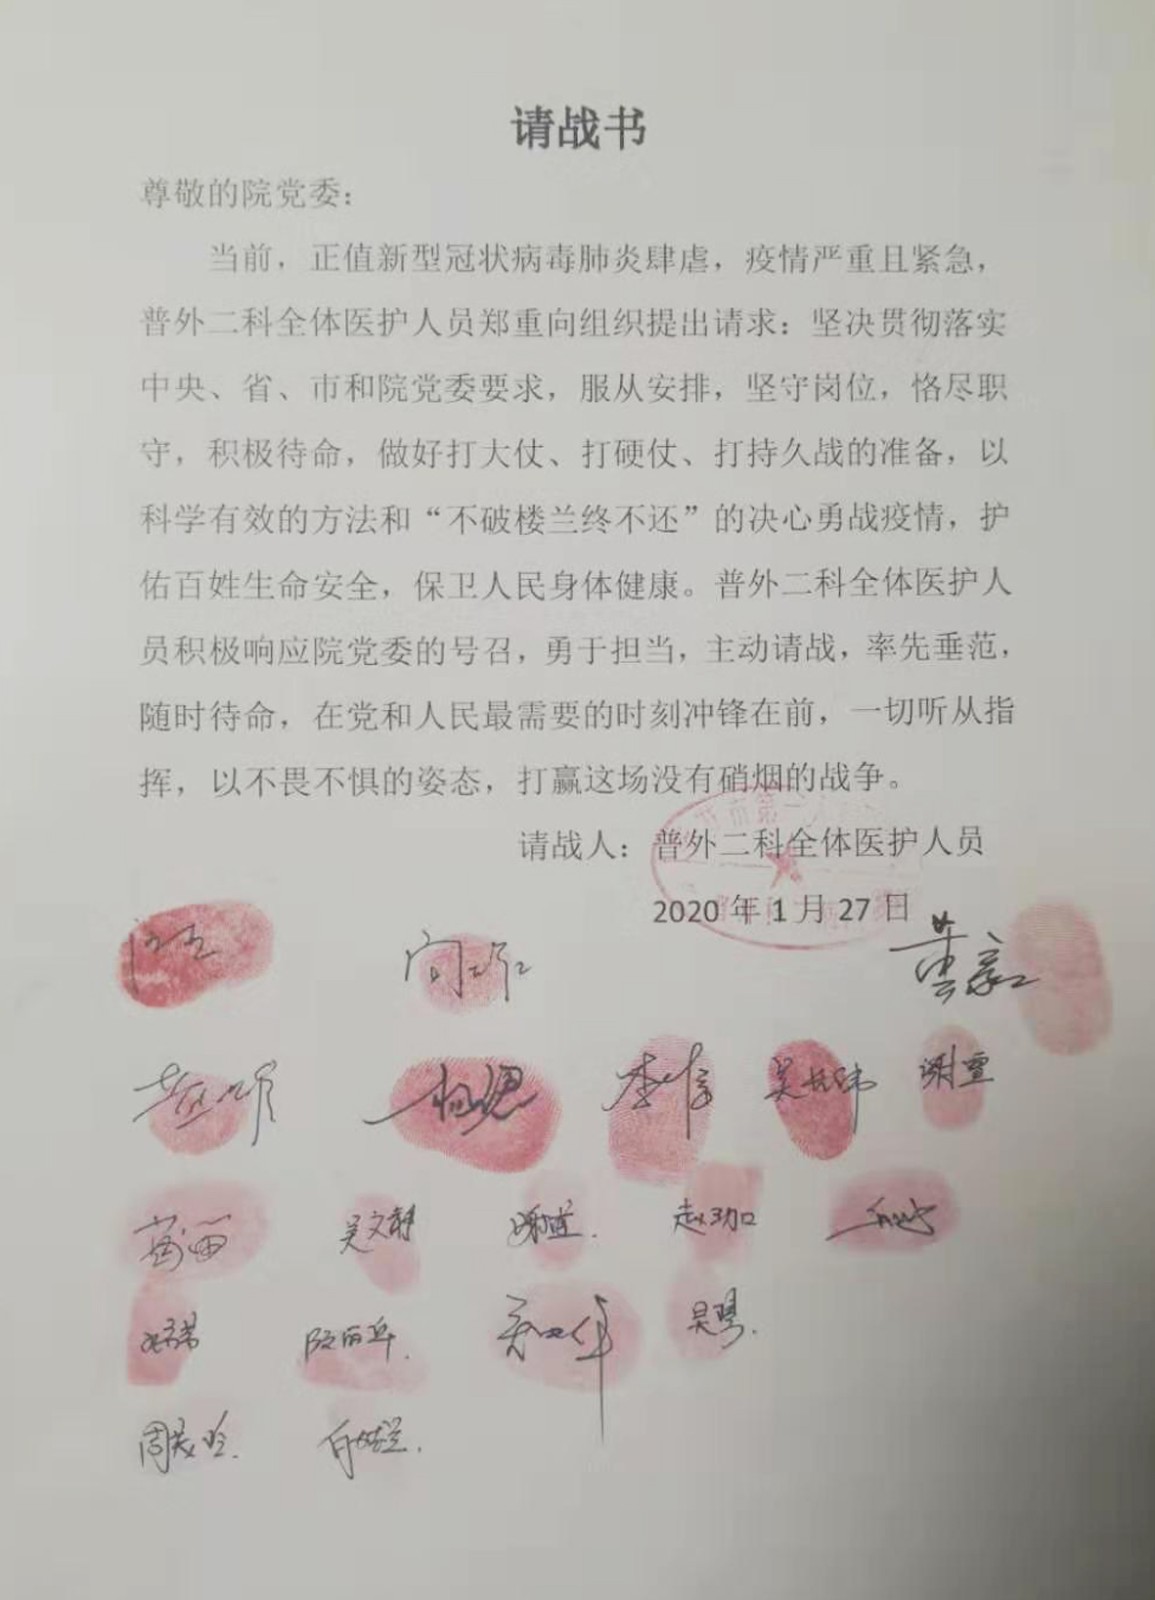 请战书
尊敬的院党委：
当前，正值新型冠状病毒肺炎肆虐，疫情严重且紧急，
普外二科全体医护人员郑重向组织提出请求：坚决贯彻落实
中央、省、市和院党委要求，服从安排，坚守岗位，恪尽职
守，积极待命，做好打大仗、打硬仗、打持久战的准备，以
科学有效的方法和“不破楼兰终不还”的决心勇战疫情，护
佑百姓生命安全，保卫人民身体健康。普外二科全体医护人
员积极响应院党委的号召，勇于担当，主动请战，率先垂范，
随时待命，在党和人民最需要的时刻冲锋在前，一切听从指
挥，以不畏不惧的姿态，打赢这场没有硝烟的战争。
请战人：普外二科全体医护人员
2020 年 1 月 27 日
吴文静
吴琴.